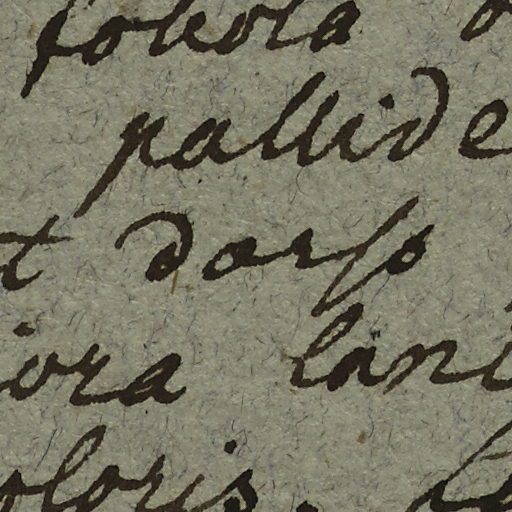 pallide
t dorso
iora lani
oloris.